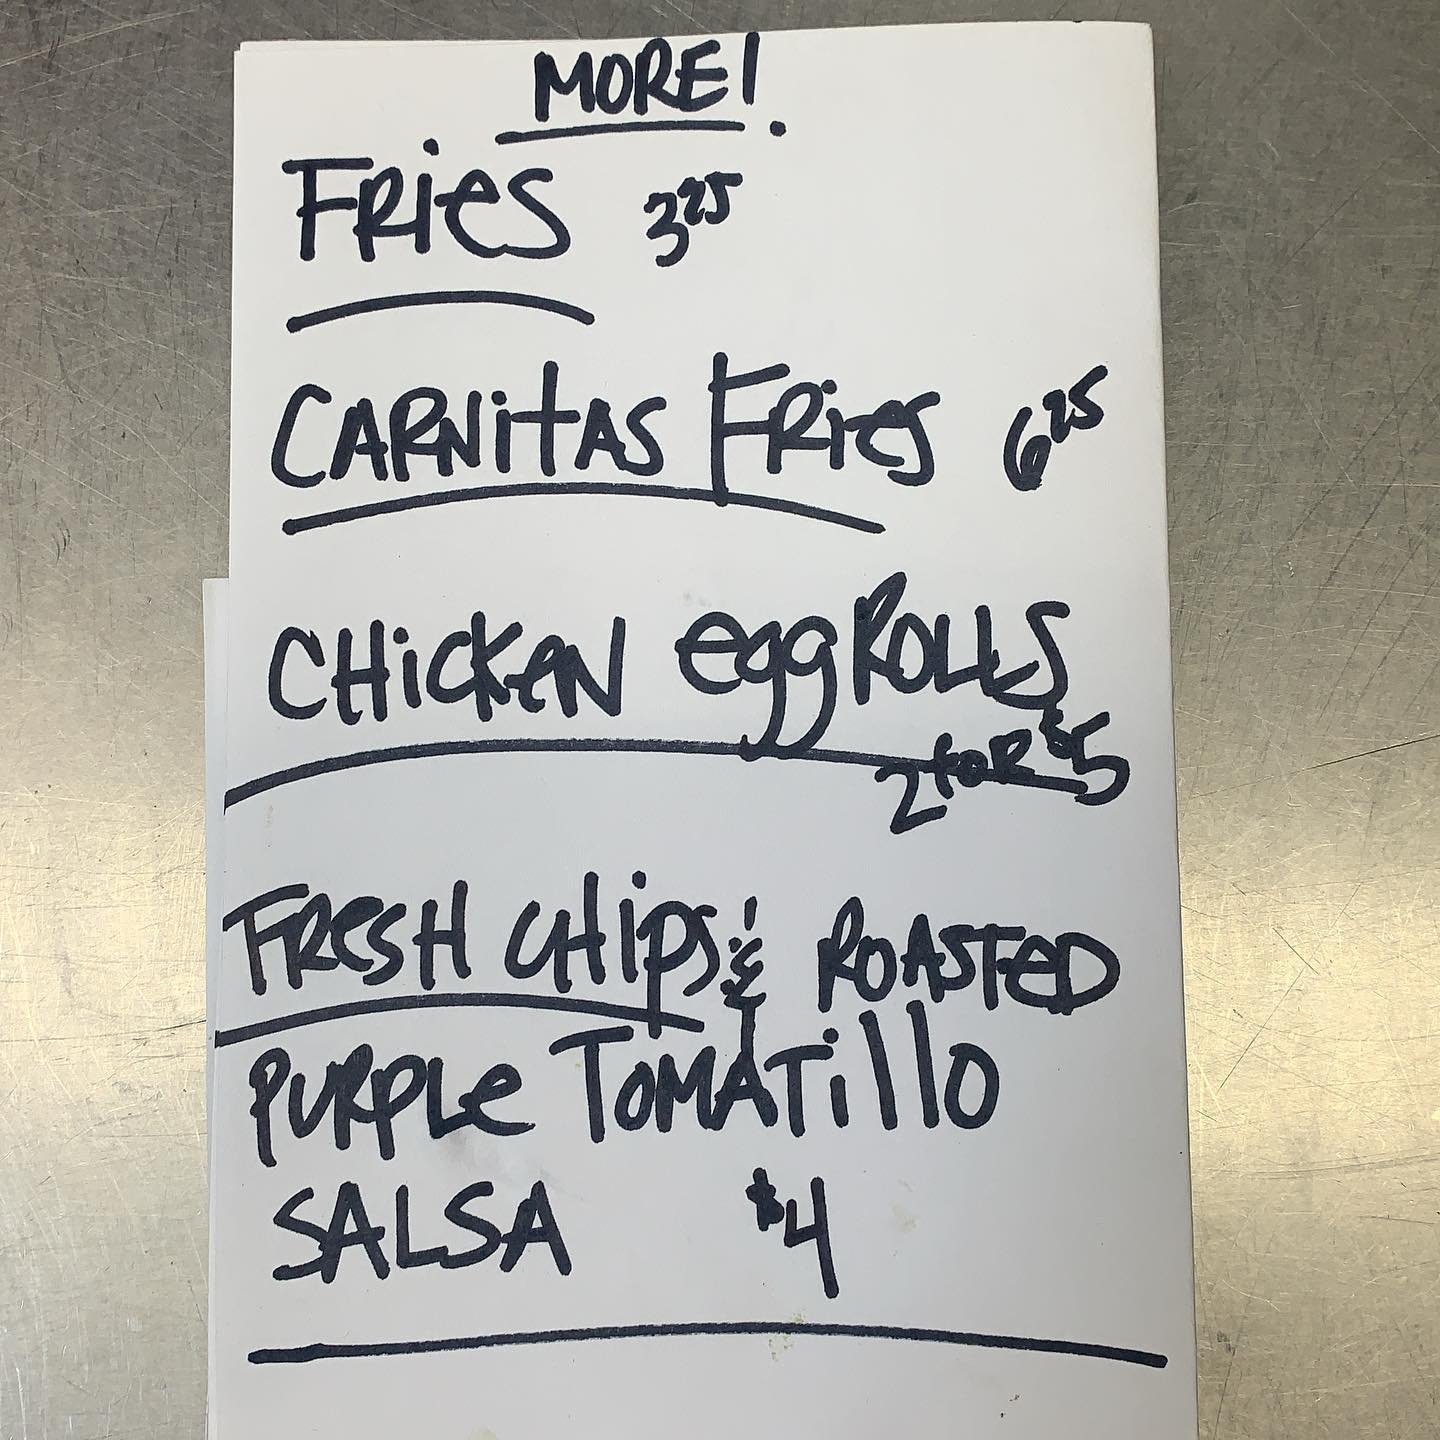 MORE!
FRieS 3²⁵
CARNitAS FRieS 6²⁵
CHicKeN eggROLLS
2 foR $5
FResH CHips & ROASTeD
PURPLe TOMATillO
SALSA $4